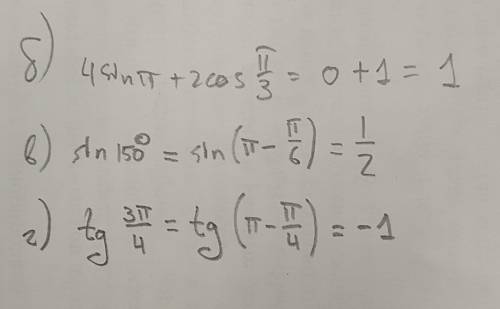 б) 4 sin π + 2 cos π/3 = 0 + 1 = 1
в) sin 150° = sin (π - π/6) = 1/2
г) tg 3π/4 = tg (π - π/4) = -1